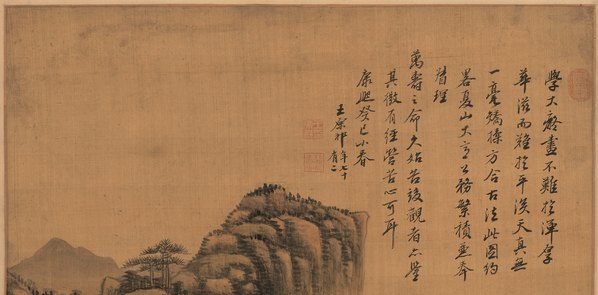 學大癡畫不難於渾厚
華滋而難於平淡天真無
一毫矯揉方合古法此圖約
畧夏山大意公務繁積兼奉
督理
萬壽之命久始告竣觀者亦
其微有經營苦心可耳
康熙癸巳小春
王原祁年七十
有二